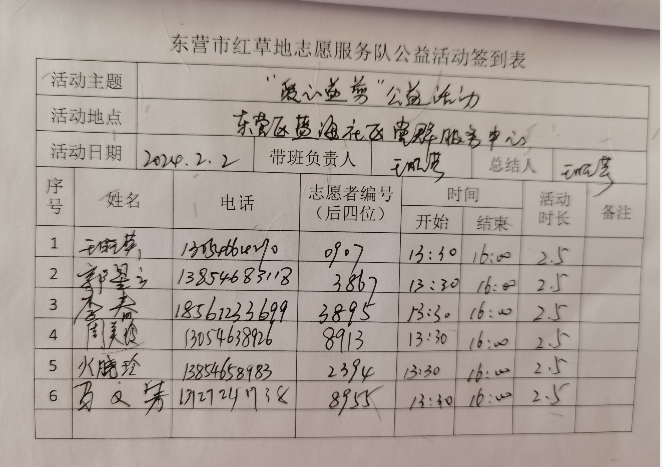 东营市红草地志愿服务队公益活动签到表
活动主题 "爱心益剪"公益活动
活动地点 东营区蓝海社区党群服务中心
活动日期 2024.2.2 带班负责人 总结人
序号 姓名 电话 志愿者编号（后四位） 时间 开始 结束 活动时长 备注
1 0907 13:30 16:00 2.5
2 13854683118 3867 13:30 16:00 2.5
3 18561233699 3895 13:30 16:00 2.5
4 13054638926 8913 13:30 16:00 2.5
5 13854658983 2394 13:30 16:00 2.5
6 8955 13:30 16:00 2.5